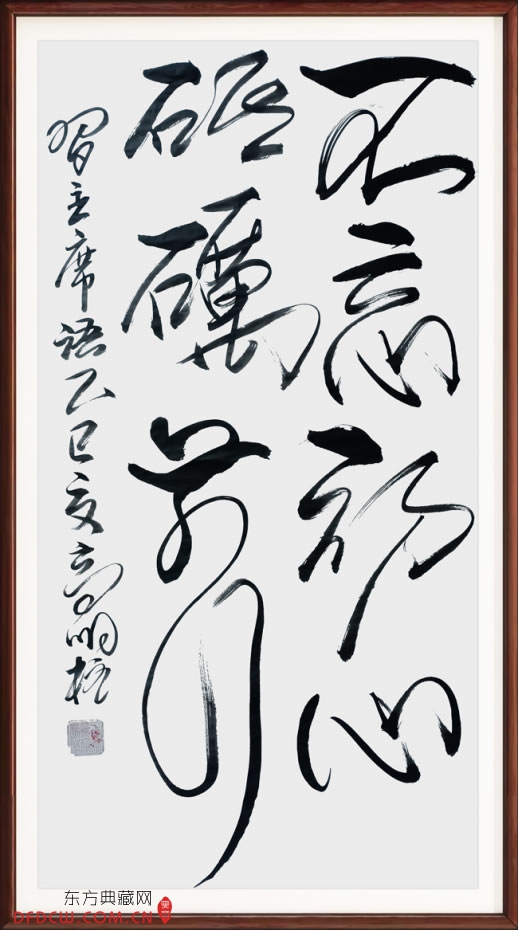 不忘初心
砥砺前行
习主席语乙巳夏高明柱
东方典藏网
DFDCW.COM.CN